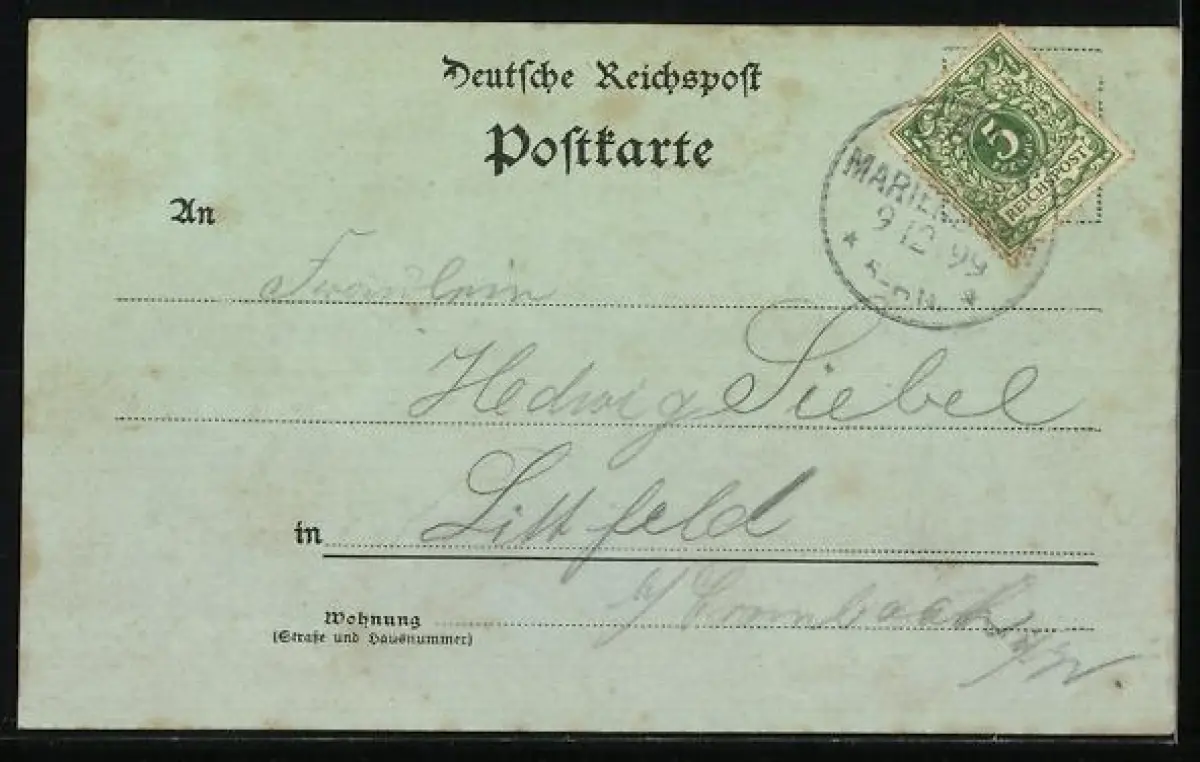 Deutsche Reichspost
Postkarte
5
REICHSPOST
MARIEN
9 12 99
An
Fräulein
Hedwig Siebel
in Littfeld
Wohnung
(Straße und Hausnummer)
b/ Crombach
i/W